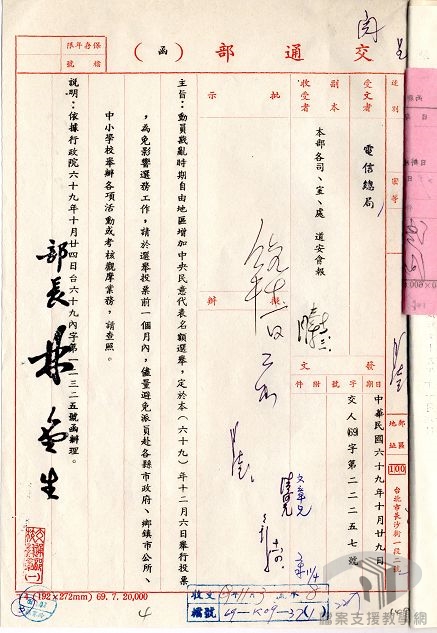 交通部（函）
速別
密等
受文者 電信總局
副本收受者 本部各司、室、處 道安會報
郵區 100
地址 台北市長沙街一段二號
發文
日期 中華民國六十九年十月廿九日
字號 交人(69)字第二二二五七號
附件
批示
擬辦
保存年限
檔號
主旨：動員戡亂時期自由地區增加中央民意代表名額選舉，定於本（六十九）年十二月六日舉行投票
，為免影響選務工作，請於選舉投票前一個月內，儘量避免派員赴各縣市政府、鄉鎮市公所、
中小學校舉辦各項活動或考核觀摩業務，請查照。
說明：依據行政院六十九年十月廿四日台六十九內字第一二三二五號函辦理。
部長 林金生
(192×272mm) 69. 7. 20,000
4
收文
檔號
檔案支援教學網